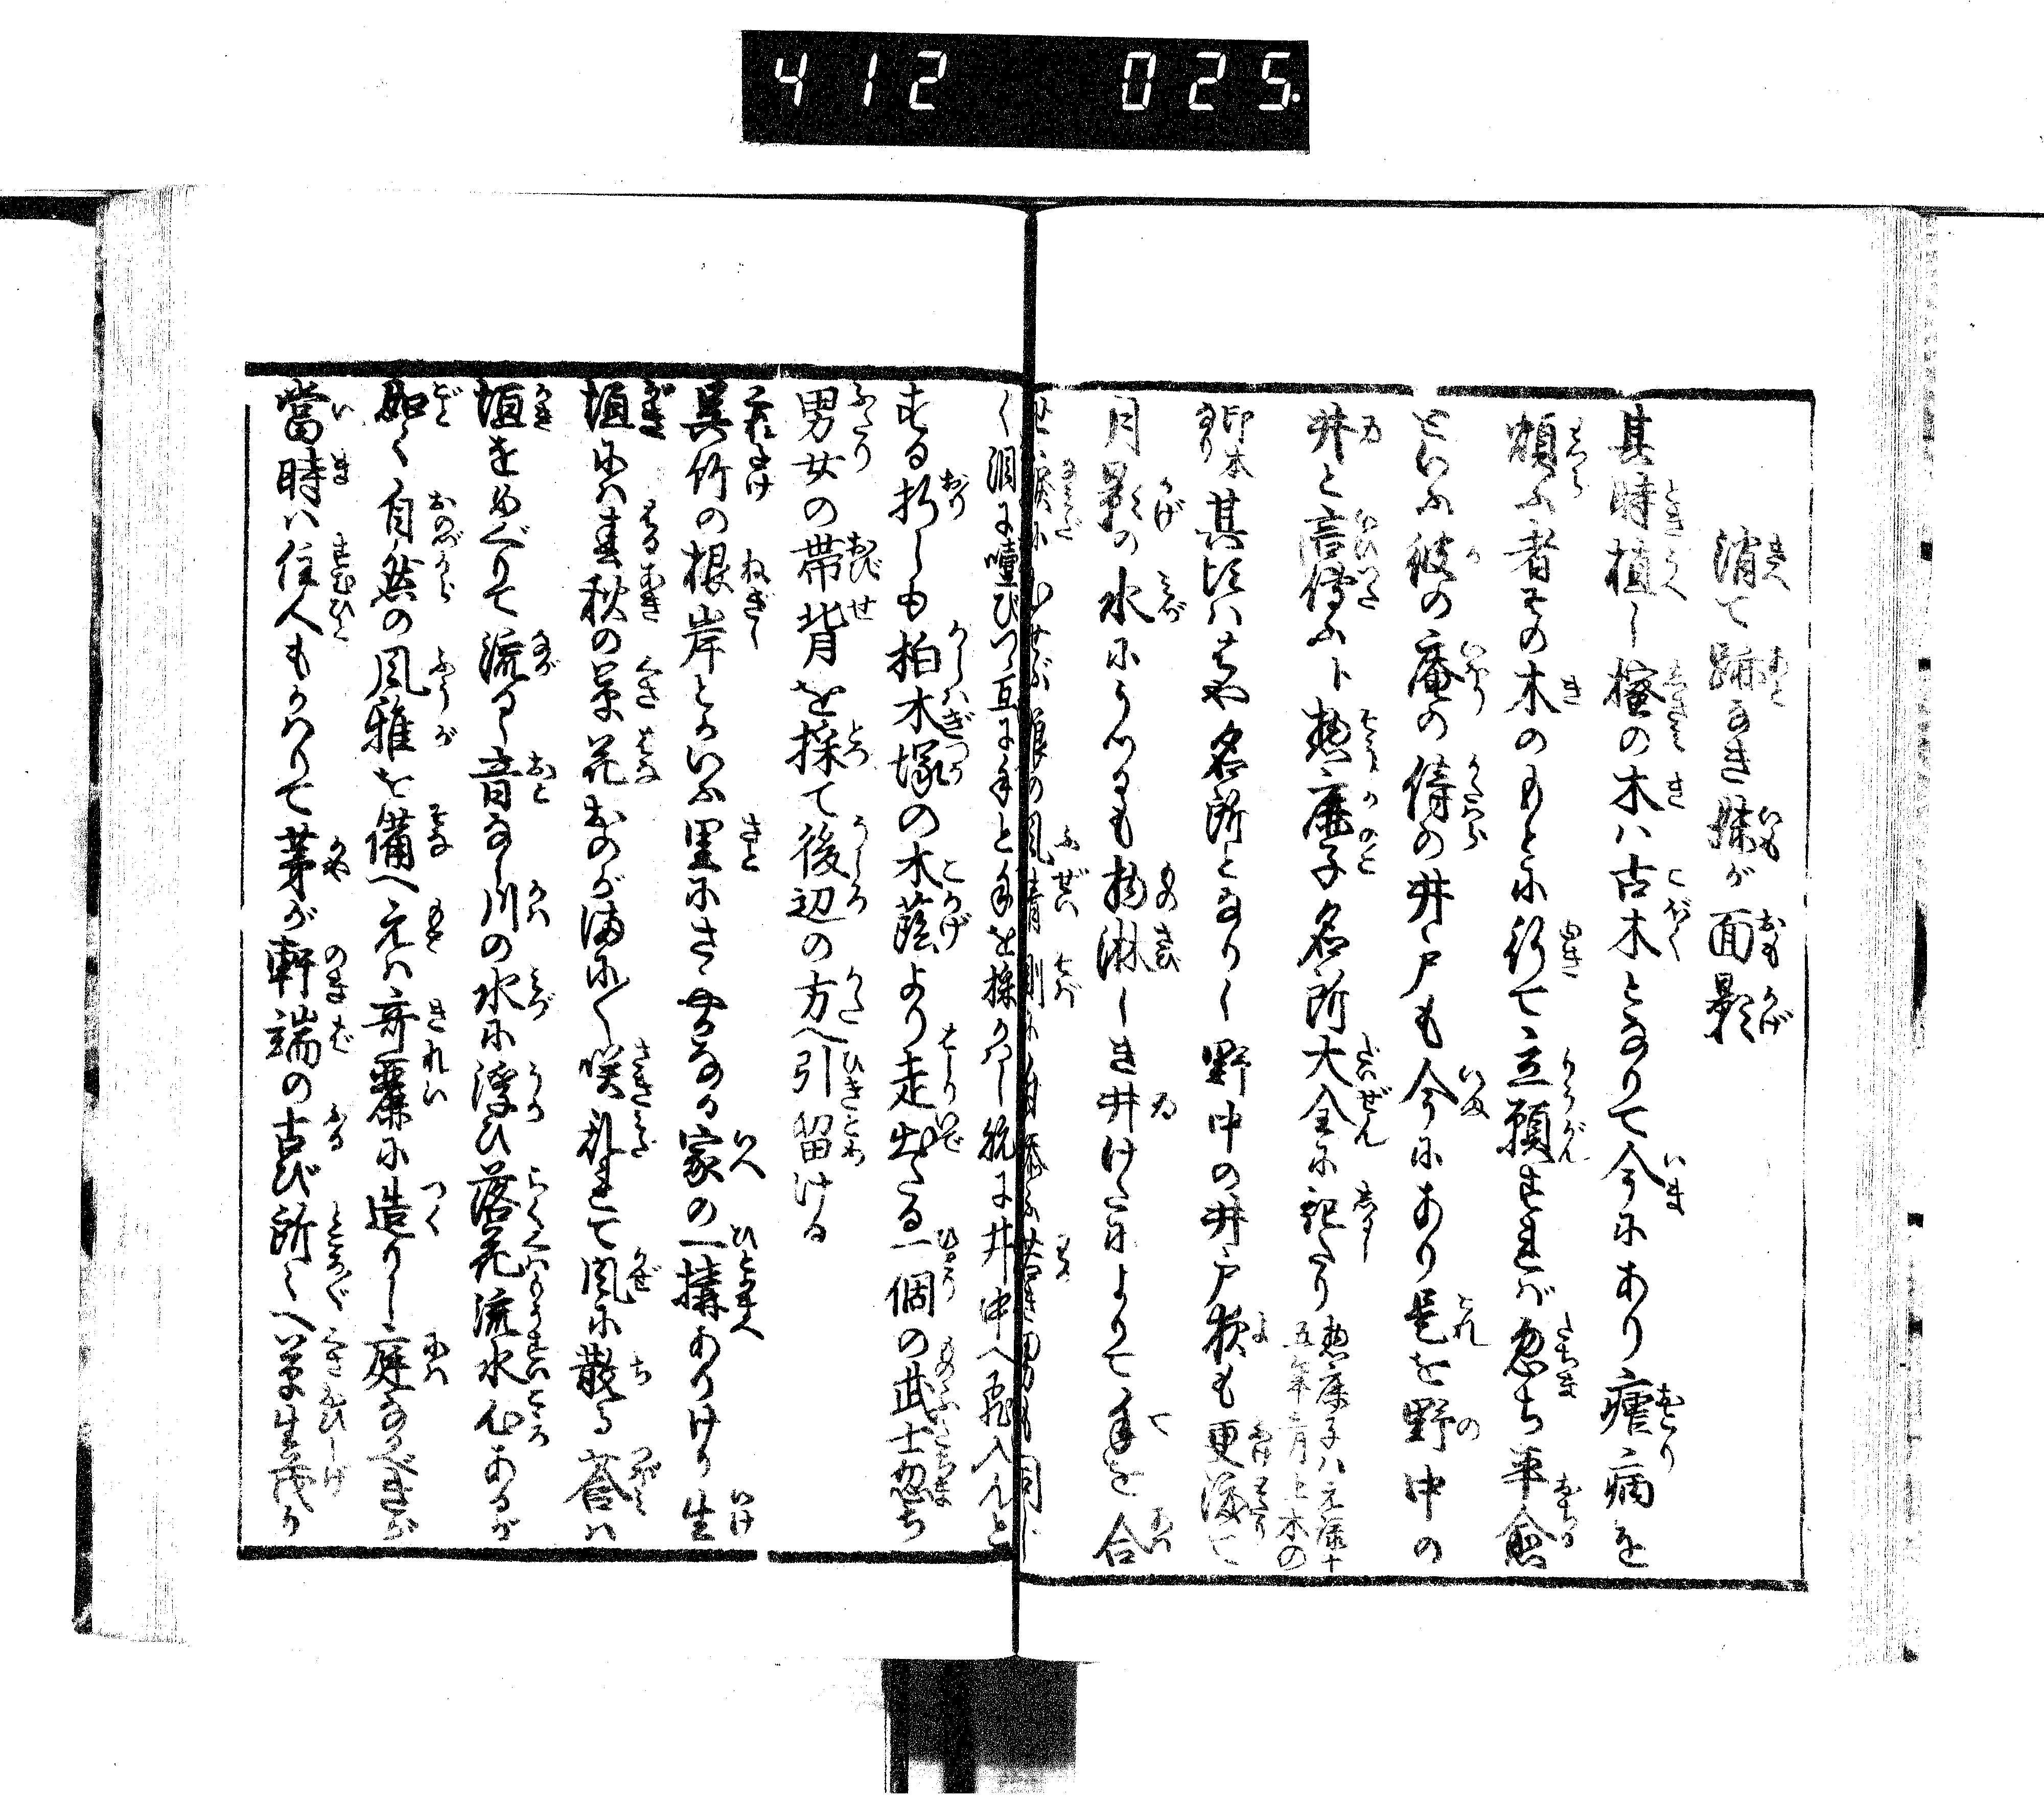 412 025.
消て跡なき妹が面影
其時植し樒の木ハ古木となりて今にあり瘧病を
煩ふ者その木のもとに行て立願すれバ忽ち平愈
といふ彼の庵の傍の井戸も今にあり是を野中の
井と言伝ふト惣鹿子名所大全に記たり惣鹿子ハ元禄十
五年二月上木の
印本
なり其頃ハはや名所となりし野中の井戸夜も更渡て
月影の水にうつるも物淋しき井げたによりて手を合
せ涙にむせぶ娘の風情側に自添ふ若き男も同じ
く涙に噎びつゝ互に手と手を採かハし既に井中へ飛入んと
する折しも柏木塚の木蔭より走出たる一個の武士忽ち
男女の帯背を採て後辺の方へ引留ける
呉竹の根岸とかいふ里にさゝやかなる家の一搆ありけり生
垣にハ春秋の草花おのがまに〳〵咲乱れて風に散る苔ハ
垣をめぐりて流るゝ音なし川の水に浮ひ落花流水心あるが
如く自然の風雅を備へ元ハ奇麗に造りし庭なるべきが
當時ハ住人もかハりて茅が軒端の古び所〻へ草生茂り